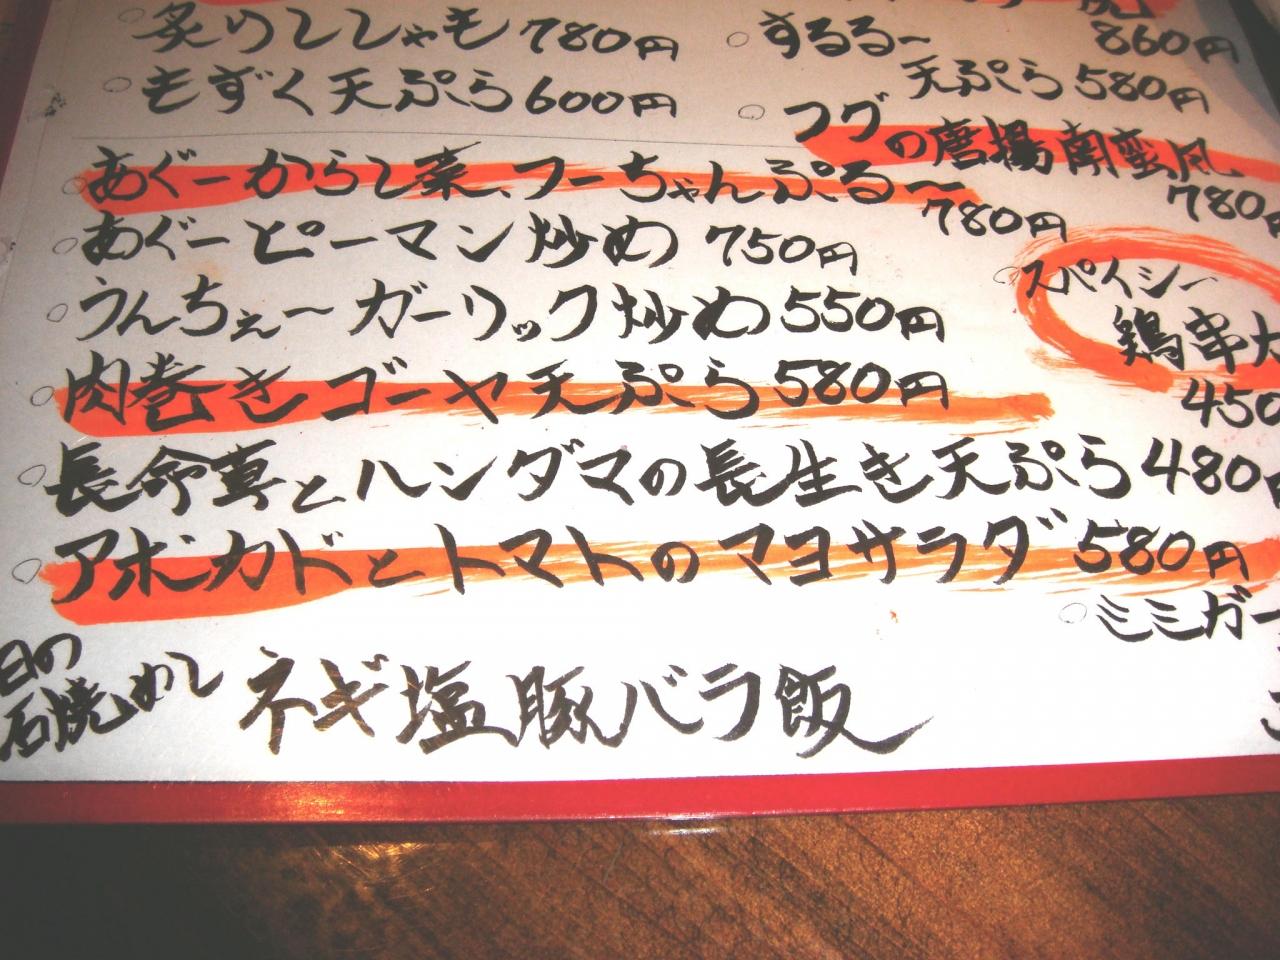 炙りししゃも 780円
もずく天ぷら 600円
あぐーからし菜、フーちゃんぷる〜
780円
あぐーピーマン炒め 750円
うんちぇー ガーリック炒め 550円
肉巻きゴーヤ天ぷら 580円
長命草とハンダマの長生き天ぷら 480円
アボカドとトマトのマヨサラダ 580円
860円
するる〜
天ぷら 580円
フグ
の唐揚南蛮風
780円
スパイシー
鶏串大
450
ミミガー
日の
石焼めし
ネギ塩豚バラ飯